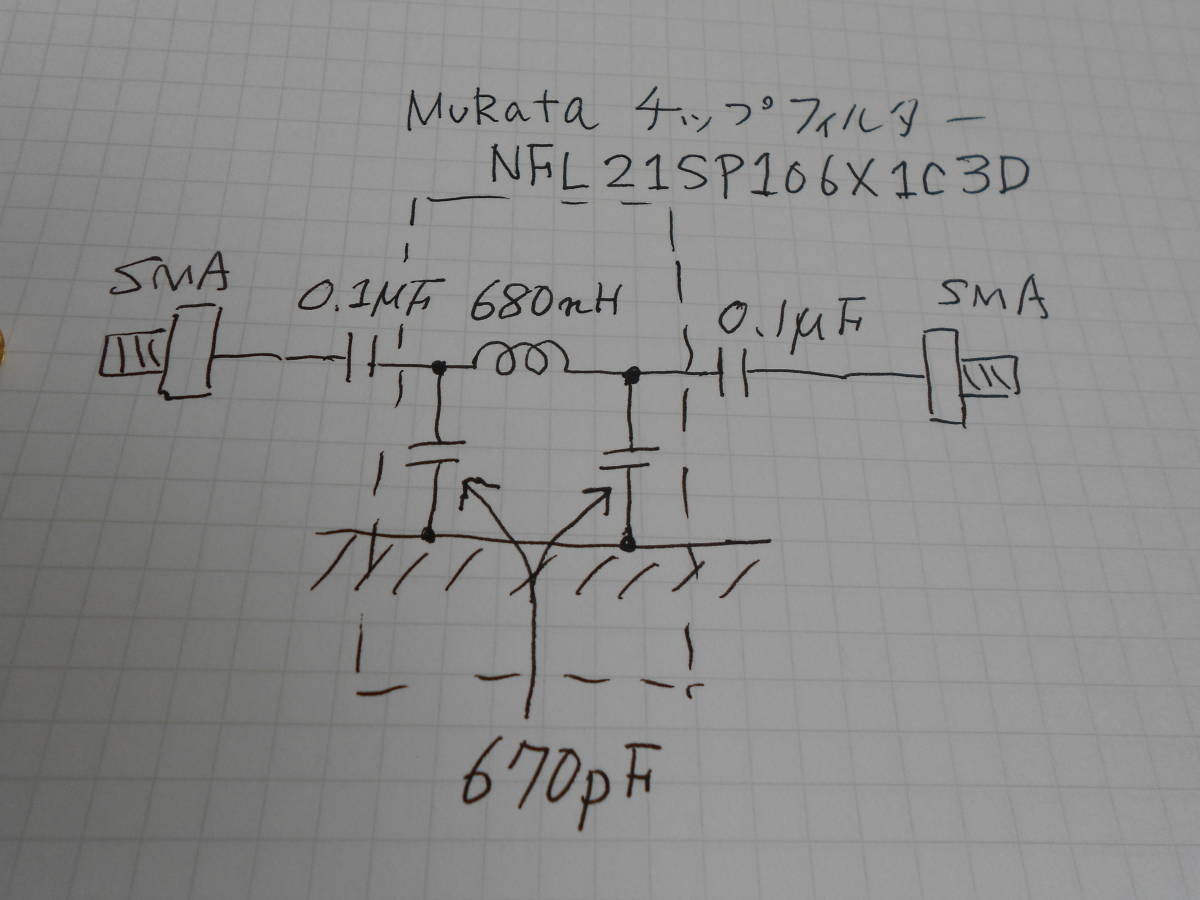 MuRata チップフィルター
NFL21SP106X1C3D
SMA
0.1μF
680nH
0.1μF
SMA
670pF